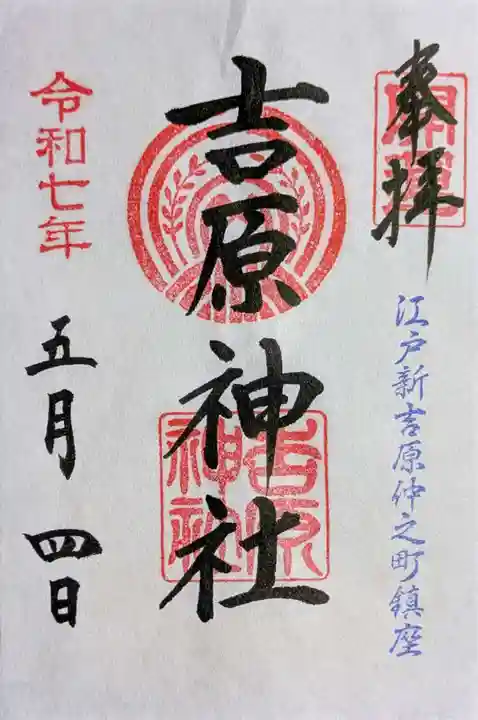 奉拝
開運
江戸新吉原仲之町鎮座
吉原神社
吉原
神社
令和七年
五月四日